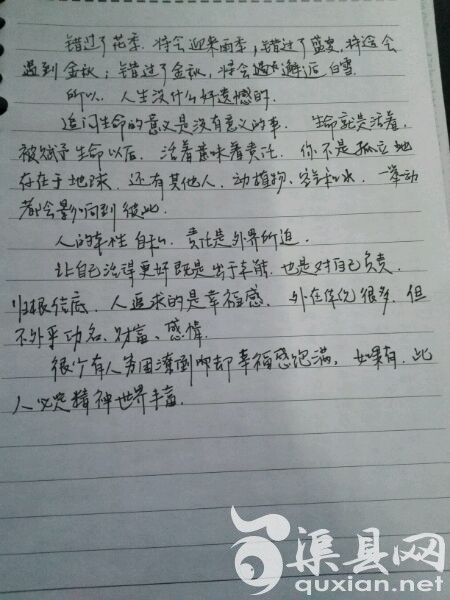 错过了花季,将会迎来雨季;错过了盛夏,将会
遇到金秋;错过了金秋,将会邂逅白雪.
所以,人生没什么好遗憾的.
追问生命的意义是没有意义的事. 生命就是活着,
被赋予生命以后,活着意味着责任. 你不是孤立地
存在于地球,还有其他人、动植物、空气和水,一举动
都会影响到彼此.
人的本性自私,责任是外界所迫.
让自己活得更好既是出于本能,也是对自己负责.
归根结底,人追求的是幸福感. 外在体现很多,但
不外乎功名、财富、感情.
很少有人穷困潦倒却幸福感饱满,如果有,此
人必定精神世界丰富.
渠县网
quxian.net